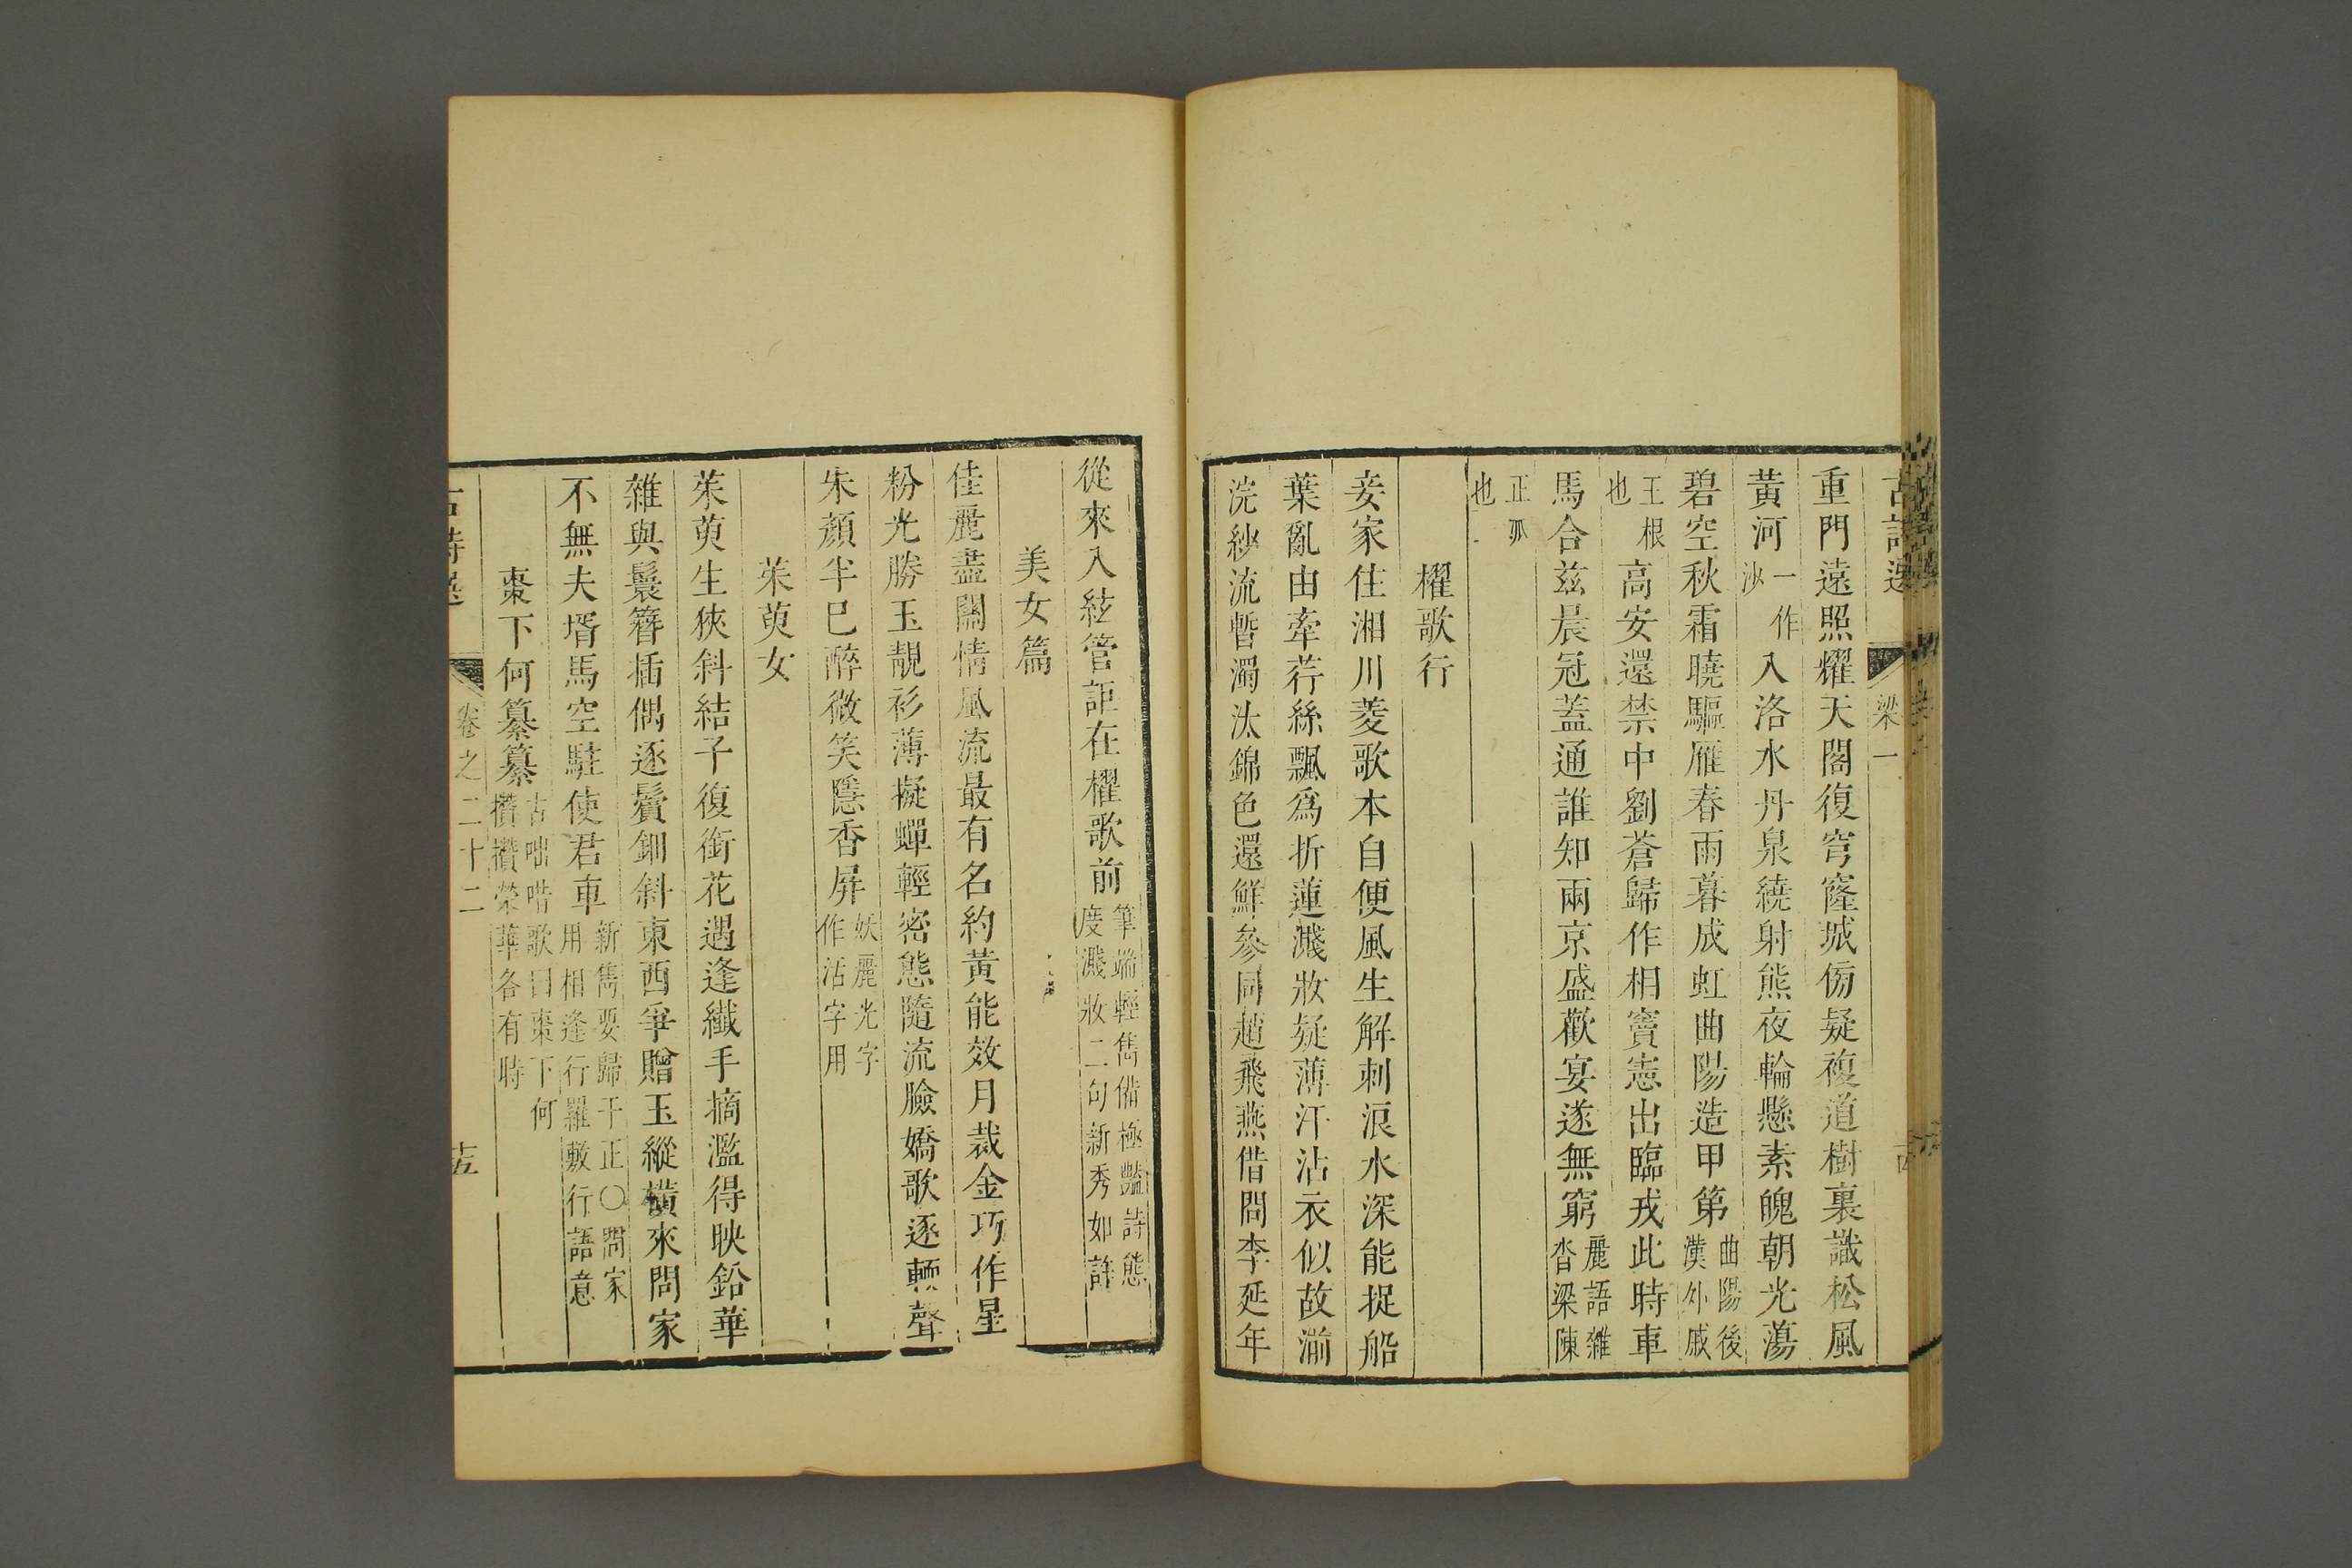 梁一
重門遠照耀天閣復穹窿城傍疑複道樹裏識松風
黃河一作沙入洛水丹泉繞射熊夜輪懸素魄朝光蕩
碧空秋霜曉驅雁春雨暮成虹曲陽造甲第曲陽後漢外戚
王根也高安還禁中劉蒼歸作相竇憲出臨戎此時車
馬合茲晨冠蓋通誰知兩京盛歡宴遂無窮麗語雜沓梁陳
正
也
櫂歌行
妾家住湘川菱歌本自便風生解刺浪水深能捉船
葉亂由牽荇絲飄爲折蓮濺妝疑薄汗沾衣似故湔
浣紗流暫濁汰錦色還鮮參同趙飛燕借問李延年
從來入絃管詎在櫂歌前筆端輕雋備極豔詩態度濺妝二句新秀如許
美女篇
佳麗盡關情風流最有名約黃能效月裁金巧作星
粉光勝玉靚衫薄擬蟬輕密態隨流臉嬌歌逐輭聲
朱顏半已醉微笑隱香屏妖麗光字作活字用
茱萸女
茱萸生狹斜結子復銜花遇逢纖手摘濫得映鉛華
雜與鬟簪插偶逐鬢鈿斜東西爭贈玉縱橫來問家
不無夫壻馬空駐使君車新雋要歸于正○問家用相逢行羅敷行語意
棗下何纂纂古咄唶歌曰棗下何攢攢榮華各有時
古詩選 卷之二十二 十五